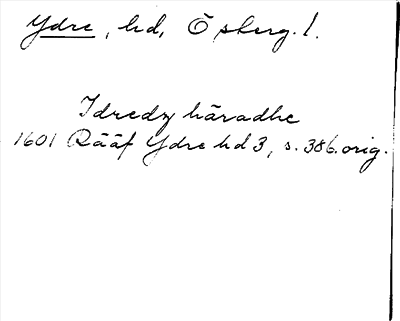 Ydre, hd, Ösberg. l.
Idredz häradhe
1601 Rääf Ydre hd 3, s. 386. orig.